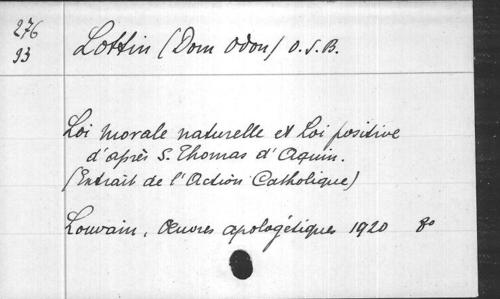 276
93
Lottin (Dom Odon) O.S.B.
Loi morale naturelle et Loi positive
d'après S. Thomas d'Aquin.
(Extrait de l'Action Catholique)
Louvain, Œuvres apologétiques 1920 8º